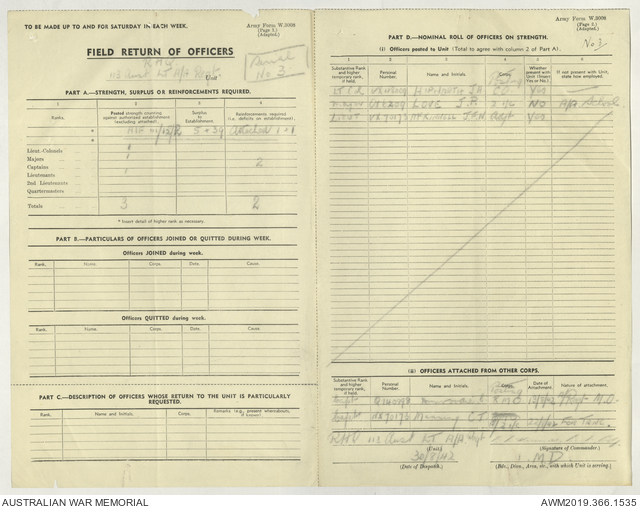 Army Form W.3008
(Page 1.)
(Adapted.)
TO BE MADE UP TO AND FOR SATURDAY IN EACH WEEK.
FIELD RETURN OF OFFICERS
RHQ
Serial
No 3
113 Aust Lt A/A Regt Unit
PART A.—STRENGTH, SURPLUS OR REINFORCEMENTS REQUIRED.
1 2 3 4
Ranks.
Posted strength counting against authorised establishment (excluding attached).
Surplus to Establishment.
Reinforcements required (i.e. deficits on establishment).
Lieut.-Colonels
Majors
Captains 2
Lieutenants
2nd Lieutenants
Quartermasters
Totals 3 2
* Insert detail of higher rank as necessary.
PART B.—PARTICULARS OF OFFICERS JOINED OR QUITTED DURING WEEK.
Officers JOINED during week.
Rank. Name. Corps. Date. Cause.
Officers QUITTED during week.
Rank. Name. Corps. Date. Cause.
PART C.—DESCRIPTION OF OFFICERS WHOSE RETURN TO THE UNIT IS PARTICULARLY REQUESTED.
Name and Initials. Corps. Remarks (e.g., present whereabouts, if known).
Army Form W.3008
(Page 2.)
(Adapted.)
PART D.—NOMINAL ROLL OF OFFICERS ON STRENGTH.
No 3
(i) Officers posted to Unit (Total to agree with column 2 of Part A).
1 2 3 4 5 6
Substantive Rank and higher temporary rank, if held.
Personal Number.
Name and Initials.
Corps.
Whether present with Unit (Insert Yes or No.)
If not present with Unit, state how employed.
CO Yes
Major LOVE J.R. 2 i/c NO A/A School
Lieut Adjt Yes
(ii) OFFICERS ATTACHED FROM OTHER CORPS.
Substantive Rank and higher temporary rank, if held.
Personal Number.
Name and Initials.
Corps.
Date of Attachment.
Nature of attachment.
Capt
Capt
RHQ 113 Aust Lt A/A Regt
(Unit)
(Signature of Commander.)
30/5/42
(Date of Despatch.)
1 M.D.
(Bde., Divn., Area, etc., with which Unit is serving.)
AUSTRALIAN WAR MEMORIAL
AWM2019.366.1535